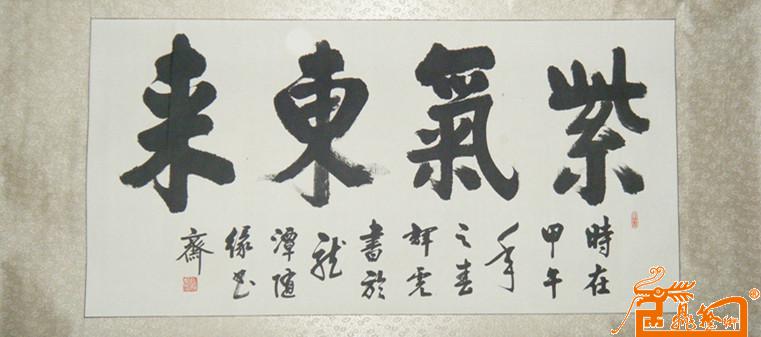 紫氣東来
時在
甲午
年
之春
輝
書於
龍
潭随
缘
齋